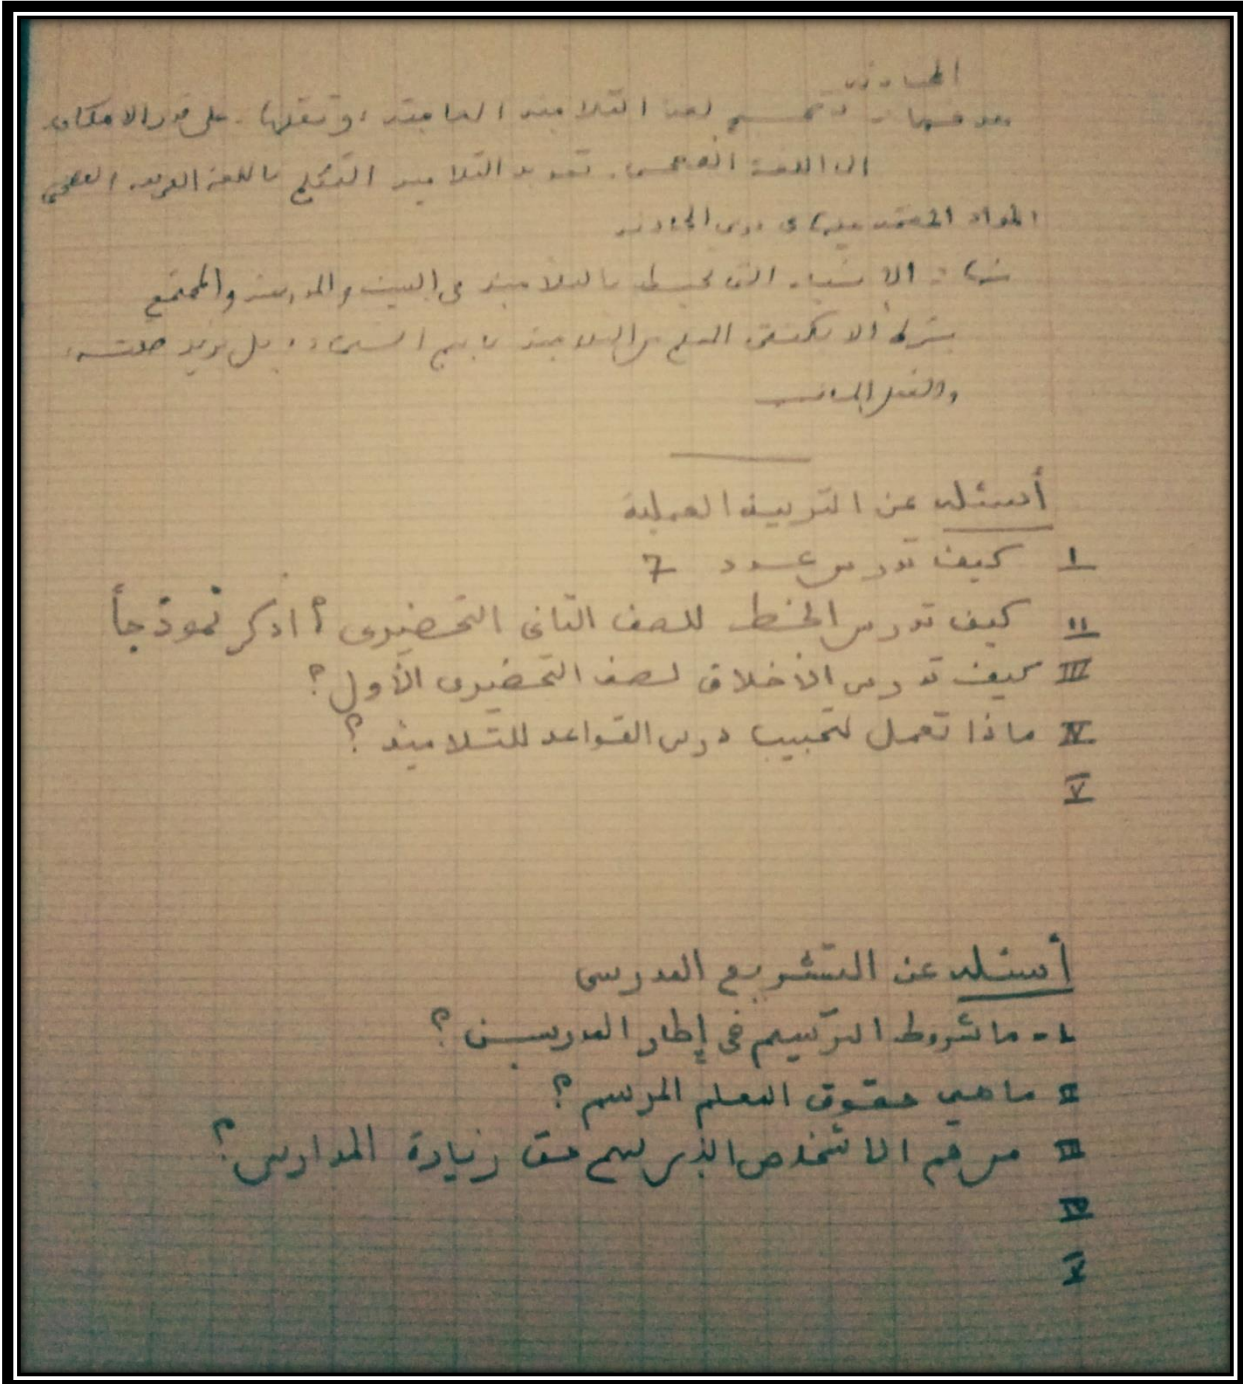 المحادثة
هدفها: تصحيح لغة التلاميذ العامية، ونقلها، على قدر الامكان
الى اللغة الفصحى، تعويد التلاميذ التكلم باللغة العربية الفصحى
المواد المعتمد عليها فى درس المحادثة
منها: الأشياء التى تحيط بالتلاميذ فى البيت والمدرسة والمجتمع
بشرط ألا يكتفى المعلم من التلاميذ باسم الشىء، بل يزيد صفته،
والفعل المناسب
أسئلة عن التربية العملية
I كيف تدرس عدد 7
II كيف تدرس الخط للصف الثانى التحضيرى؟ اذكر نموذجاً
III كيف تدرس الأخلاق لصف التحضيرى الأول؟
IV ماذا تعمل لتحبيب درس القواعد للتلاميذ؟
V
أسئلة عن التشريع المدرسى
I - ما شروط الترسيم فى إطار المدرسين؟
II ما هي حقوق المعلم المرسم؟
III من هم الاشخاص الذين لهم حق زيادة المدارس؟
IV
V